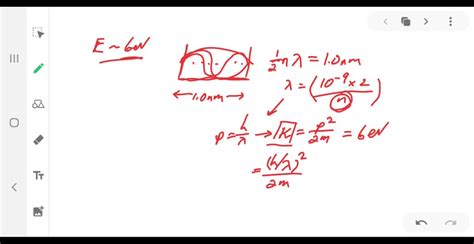 E ~ 6eV
½nλ = 1.0nm
← 1.0nm →
λ = (10⁻⁹ × 2 / n)
p = h/λ → K = p²/2m = 6eV
= (h/λ)²/2m
Tт